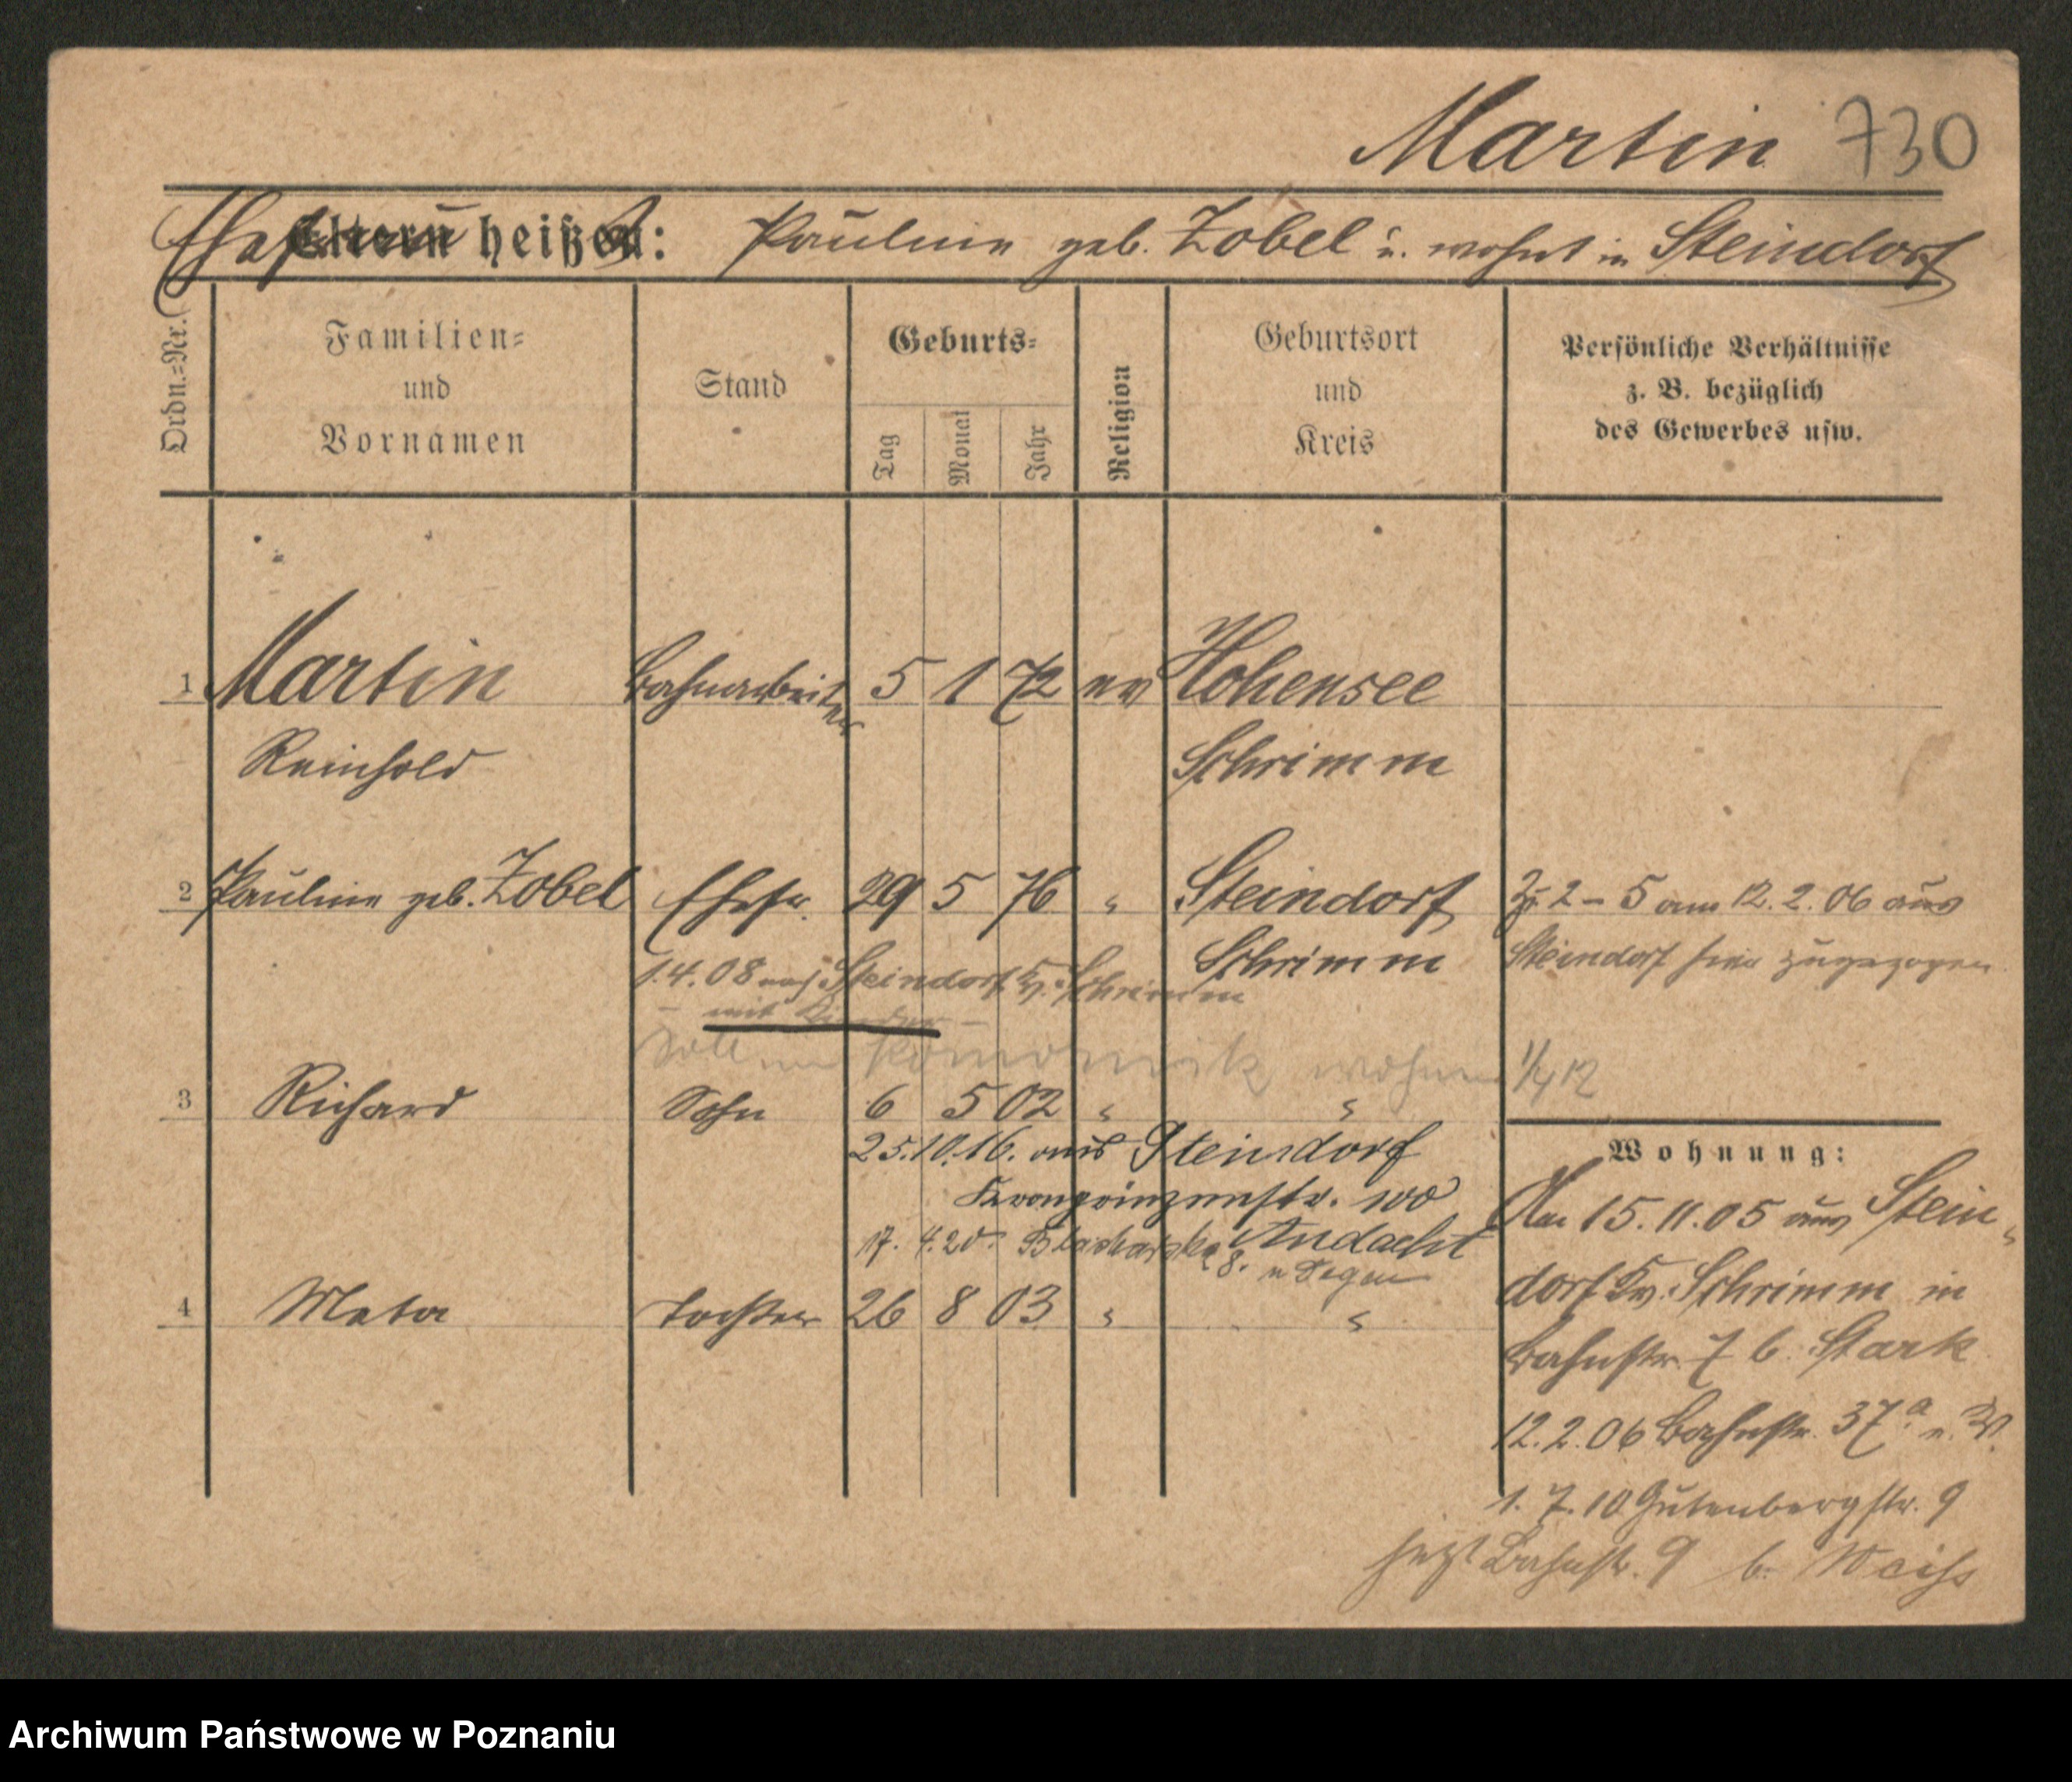 Martin 730
Ehefrau heißt: Pauline geb. Zobel u. wohnt in Steindorf
Ordn.=Nr.
Familien=
und
Vornamen
Stand
Geburts=
Tag
Monat
Jahr
Religion
Geburtsort
und
Kreis
Persönliche Verhältnisse
z. B. bezüglich
des Gewerbes usw.
1 Martin Bahnarbeiter 5 1 72 ev Hohensee
Reinhold Schrimm
2 Pauline geb. Zobel Ehefr. 29 5 76 " Steindorf
Schrimm
Zu 2 – 5 am 12. 2. 06 aus
Steindorf hier zugezogen
1.4.08 nach Steindorf Kr. Schrimm
mit Kinder
Soll in Komornik wohnen 1/4 12
3 Richard Sohn 6 5 02 " "
25.10.16. aus Steindorf
Kronprinzenstr. 100
17. 4.20. 8. Andacht
4 Meta Tochter 26 8 03 " "
Wohnung:
Am 15. 11. 05 aus Stein-
dorf Kr. Schrimm in
Bahnstr. 7 b. Stark
12. 2. 06 Bahnstr. 37a n. W.
1. 7. 10 Gutenbergstr. 9
jetzt Bahnstr. 9 b. Weiss
Archiwum Państwowe w Poznaniu